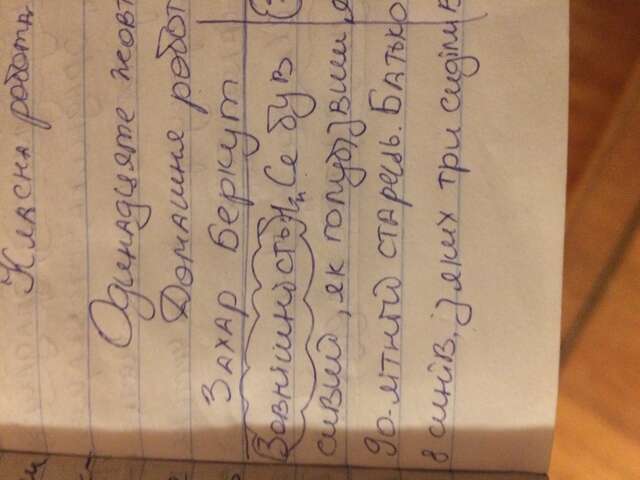 Класна робота
Одинадцяте жовт
Домашня робот
Захар Беркут
Зовнішність: Се був
сивий, як голуб, звиш
90-літній старець. Батько
8 синів, з яких три сиділи в